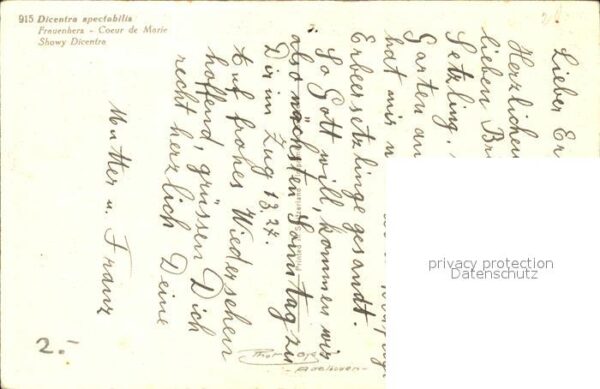 915 Dicentra spectabilis
Frauenherz - Coeur de Marie
Showy Dicentra
Lieber
Herzlichen
lieben
Setzling,
Garten
hat mir
Erbeersetzlinge gesandt.
So Gott will, kommen wir
also nächsten Sonntag zu
Dir im Zug 13.27.
Auf frohes Wiedersehen
hoffend, grüssen Dich
recht herzlich Deine
Mutter u. Franz
Printed in Switzerland
privacy protection
Datenschutz
2.-